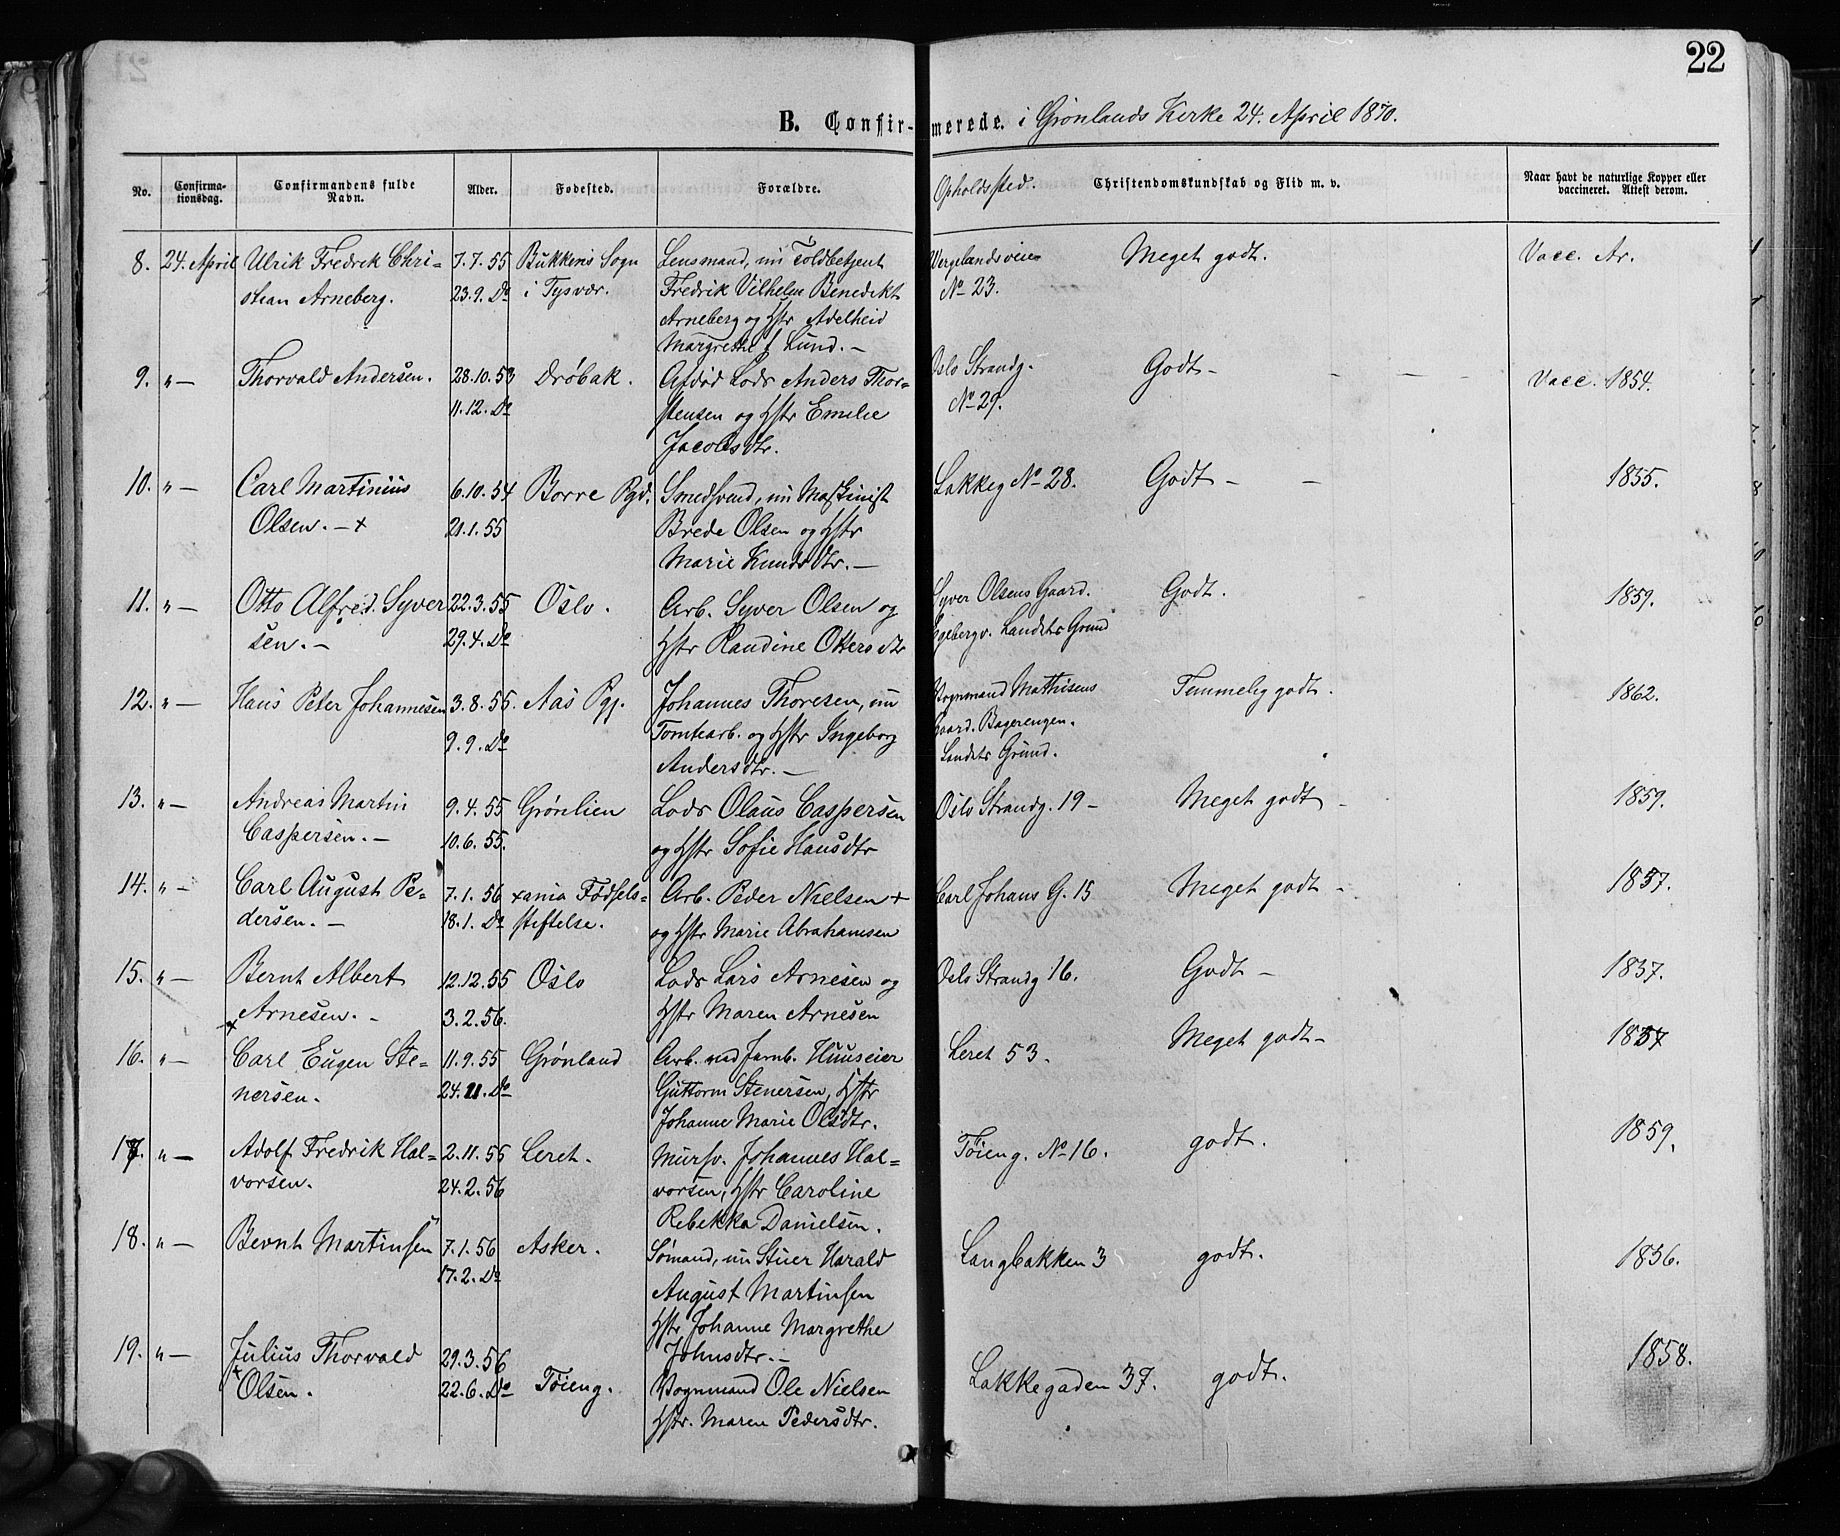 22
B. Confirmerede. i Grønlands Kirke 24. April 1870.
No. Confirmationsdag. Confirmandens fulde Navn. Alder. Fødested. Forældre. Opholdssted. Christendomskundskab og Flid m. v. Naar havt de naturlige Kopper eller vaccineret. Attest derom.
8. 24. April Ulrik Fredrik Chri- 7.7.55 Bukkens Sogn Lensmand, nu Toldbetjent Wergelandsveie Meget godt. Vacc. Ar.
stian Arneberg. 23.9. Do i Tysvær. Fredrik Vilhelm Benedikt No 23.
Arneberg og Hstr Adelheid
Margrethe f. Lund. —
9. " — Thorvald Andersen. 28.10.53 Drøbak. Afdød Lods Anders Thor= Oslo Strandg. Godt — Vacc. 1854.
11.12. Do stensen og Hstr Emilie No 29.
Jacobsdtr.
10. " — Carl Martinius 6.10.54 Borre Pgd. Smedsvend, nu Maskinist Lakkeg No 28. Godt — 1855.
Olsen. — + 21.1.55 Brede Olsen og Hstr
Marie Knudsdtr. —
11. " — Otto Alfred Syver 22.3.55 Oslo. Arb. Syver Olsen og Syver Olsens Gaard. Godt. 1859.
sen. — 29.4. Do Hstr Randine Ottersdtr Egebergv. Landets Grund
12. " — Hans Peter Johannesen 3.8.55. Aas Pgj. Johannes Thoresen, nu Vognmand Mathisens Temmelig godt. 1862.
9.9. Do Tomtearb. og Hstr Ingeborg Gaard. Bagerengen.
Andersdtr. — Landets Grund.
13. " — Andreas Martin 9.4.55 Grønlien Lods Olaus Caspersen Oslo Strandg. 19 — Meget godt — 1859.
Caspersen. — 10.6.55. og Hstr Sofie Hansdtr
14. " — Carl August Pe- 7.1.56 xania Fødsels= Arb. Peder Nielsen + Carl Johans G. 15 Meget godt — 1857.
dersen. — 18.1. Do stiftelse. og Hstr Marie Abrahamsen
15. " — Bernt Albert 12.12.55 Oslo Lods Lars Arnesen og Oslo Strandg 16. Godt — 1857.
Arnesen. — 3.2.56. Hstr Maren Arnesen
16. " — + Carl Eugen Ste- 11.9.55 Grønland Arb. ved Jernb. Huuseier Leret 53. Meget godt — 1857
nersen. 24.11. Do Guttorm Stenersen, Hstr
Johanne Marie Olsdtr.
17. " — Adolf Fredrik Hal= 2.11.55 Leret. Mursv. Johannes Hal= Tøieng. No 16. godt. 1859.
vorsen. 24.2.56 vorsen, Hstr Caroline
Rebekka Danielsen.
18. " — Bernt Martinsen 7.1.56 Asker. Sømand, nu Stuer Harald Langbakken 3 godt. 1856.
17.2. Do August Martinsen
Hstr Johanne Margrethe
Johnsdtr. —
19. " — Julius Thorvald 29.3.56 Tøieng. Vognmand Ole Nielsen Lakkegaden 37. godt. 1858.
Olsen. 22.6. Do Hstr. Maren Pedersdtr.